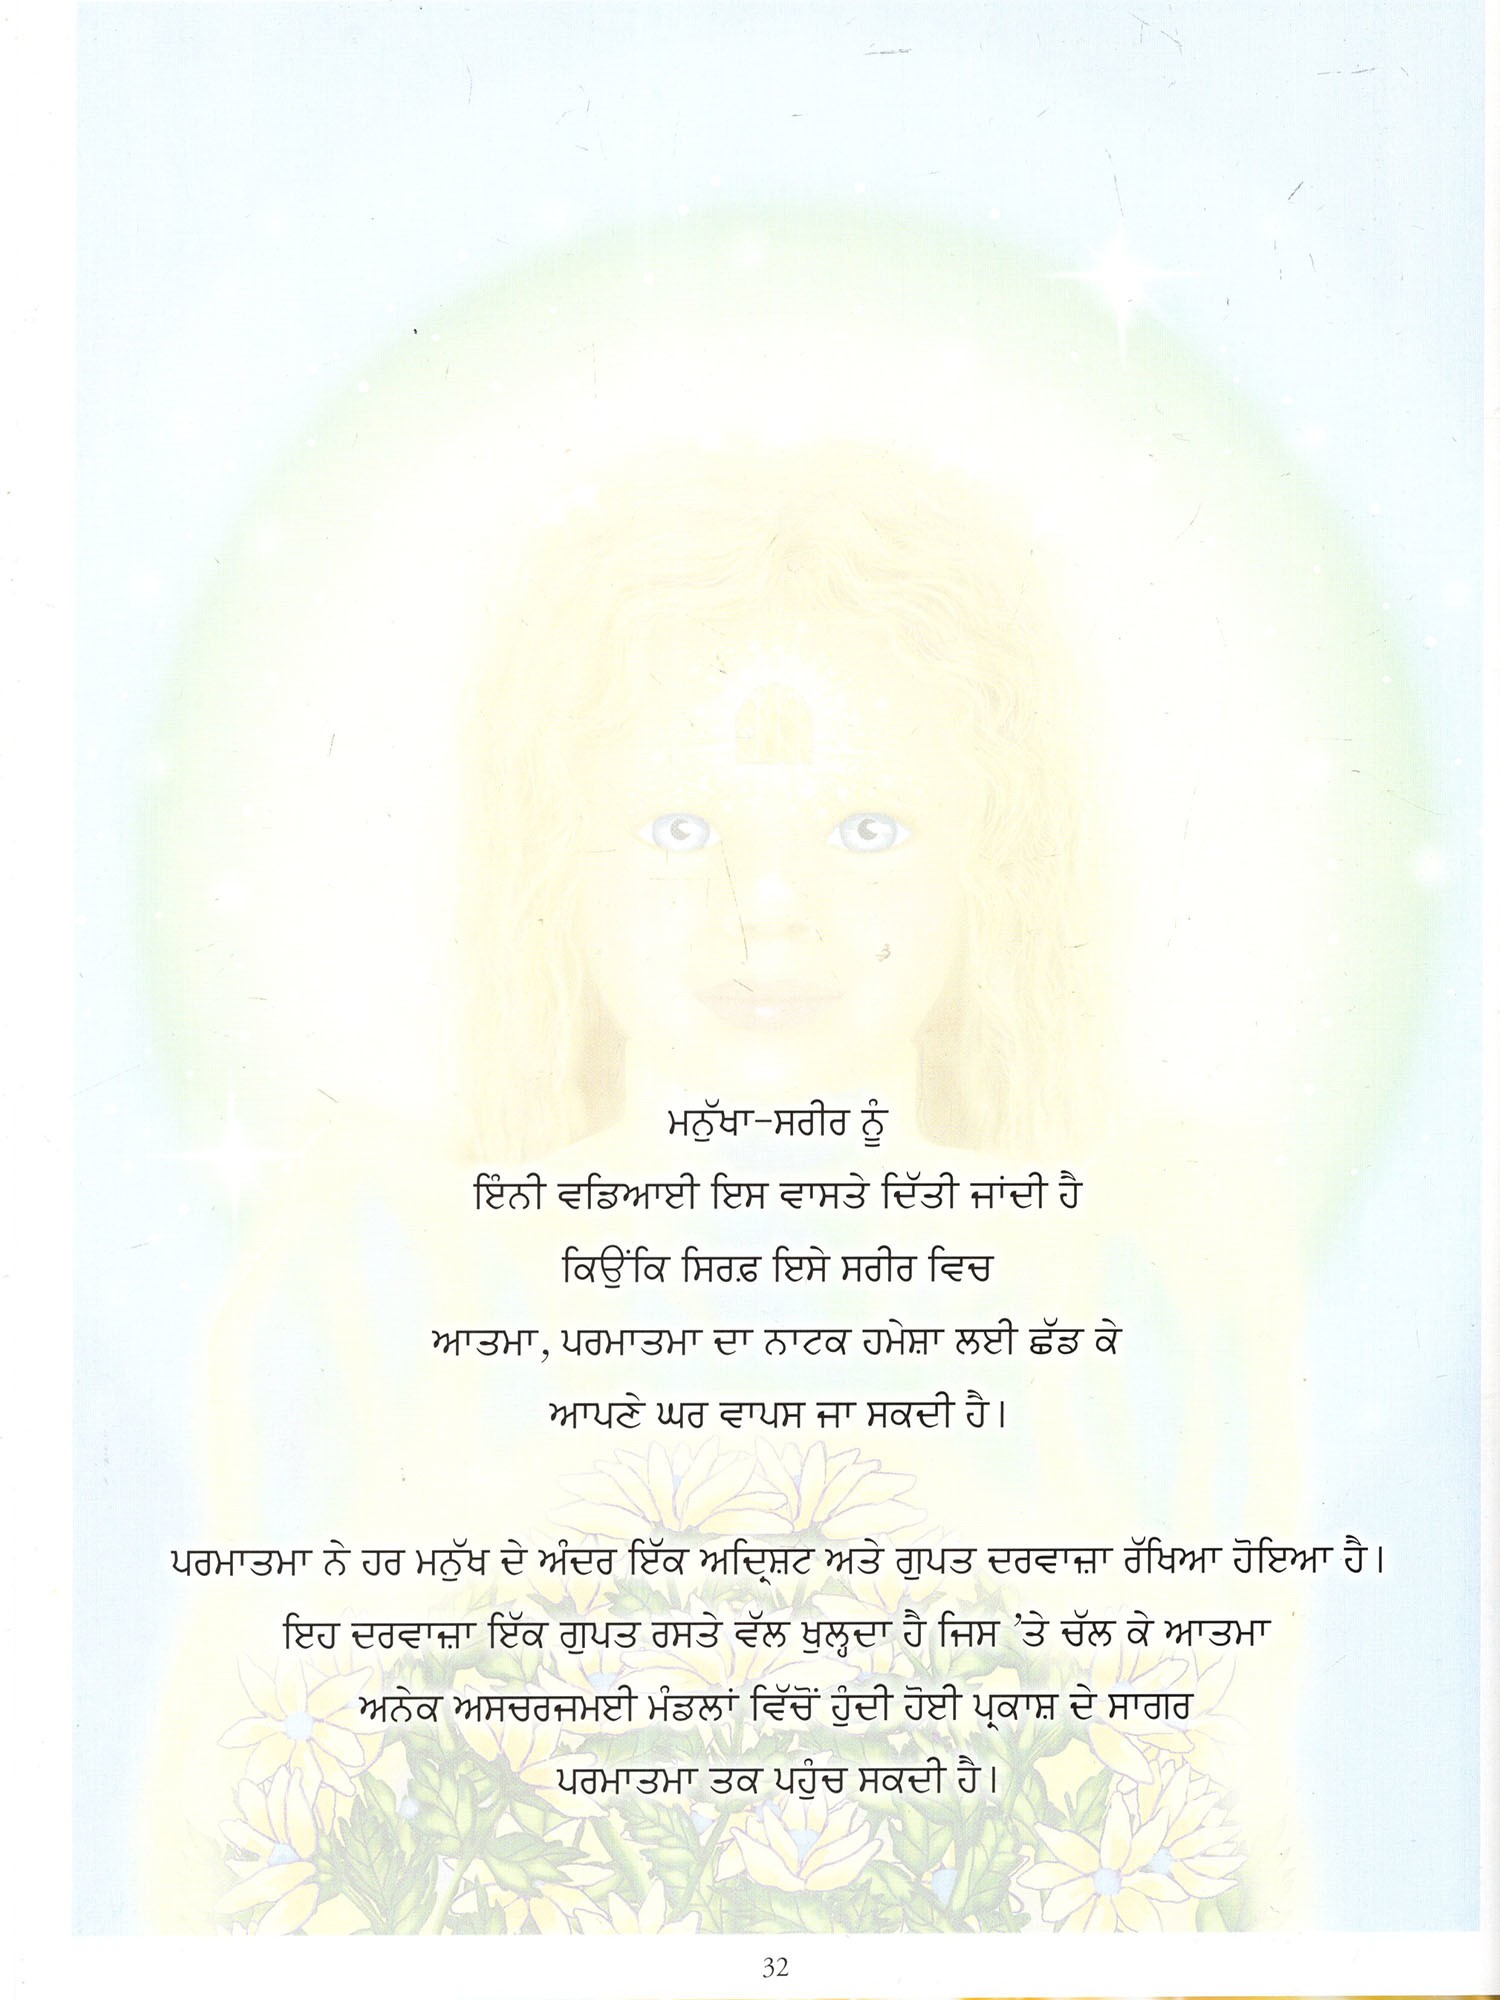 ਮਨੁੱਖਾ-ਸਰੀਰ ਨੂੰ
ਇੰਨੀ ਵਡਿਆਈ ਇਸ ਵਾਸਤੇ ਦਿੱਤੀ ਜਾਂਦੀ ਹੈ
ਕਿਉਂਕਿ ਸਿਰਫ਼ ਇਸੇ ਸਰੀਰ ਵਿਚ
ਆਤਮਾ, ਪਰਮਾਤਮਾ ਦਾ ਨਾਟਕ ਹਮੇਸ਼ਾ ਲਈ ਛੱਡ ਕੇ
ਆਪਣੇ ਘਰ ਵਾਪਸ ਜਾ ਸਕਦੀ ਹੈ।
ਪਰਮਾਤਮਾ ਨੇ ਹਰ ਮਨੁੱਖ ਦੇ ਅੰਦਰ ਇੱਕ ਅਦ੍ਰਿਸ਼ਟ ਅਤੇ ਗੁਪਤ ਦਰਵਾਜ਼ਾ ਰੱਖਿਆ ਹੋਇਆ ਹੈ।
ਇਹ ਦਰਵਾਜ਼ਾ ਇੱਕ ਗੁਪਤ ਰਸਤੇ ਵੱਲ ਖੁਲ੍ਹਦਾ ਹੈ ਜਿਸ ’ਤੇ ਚੱਲ ਕੇ ਆਤਮਾ
ਅਨੇਕ ਅਸਚਰਜਮਈ ਮੰਡਲਾਂ ਵਿੱਚੋਂ ਹੁੰਦੀ ਹੋਈ ਪ੍ਰਕਾਸ਼ ਦੇ ਸਾਗਰ
ਪਰਮਾਤਮਾ ਤਕ ਪਹੁੰਚ ਸਕਦੀ ਹੈ।
32